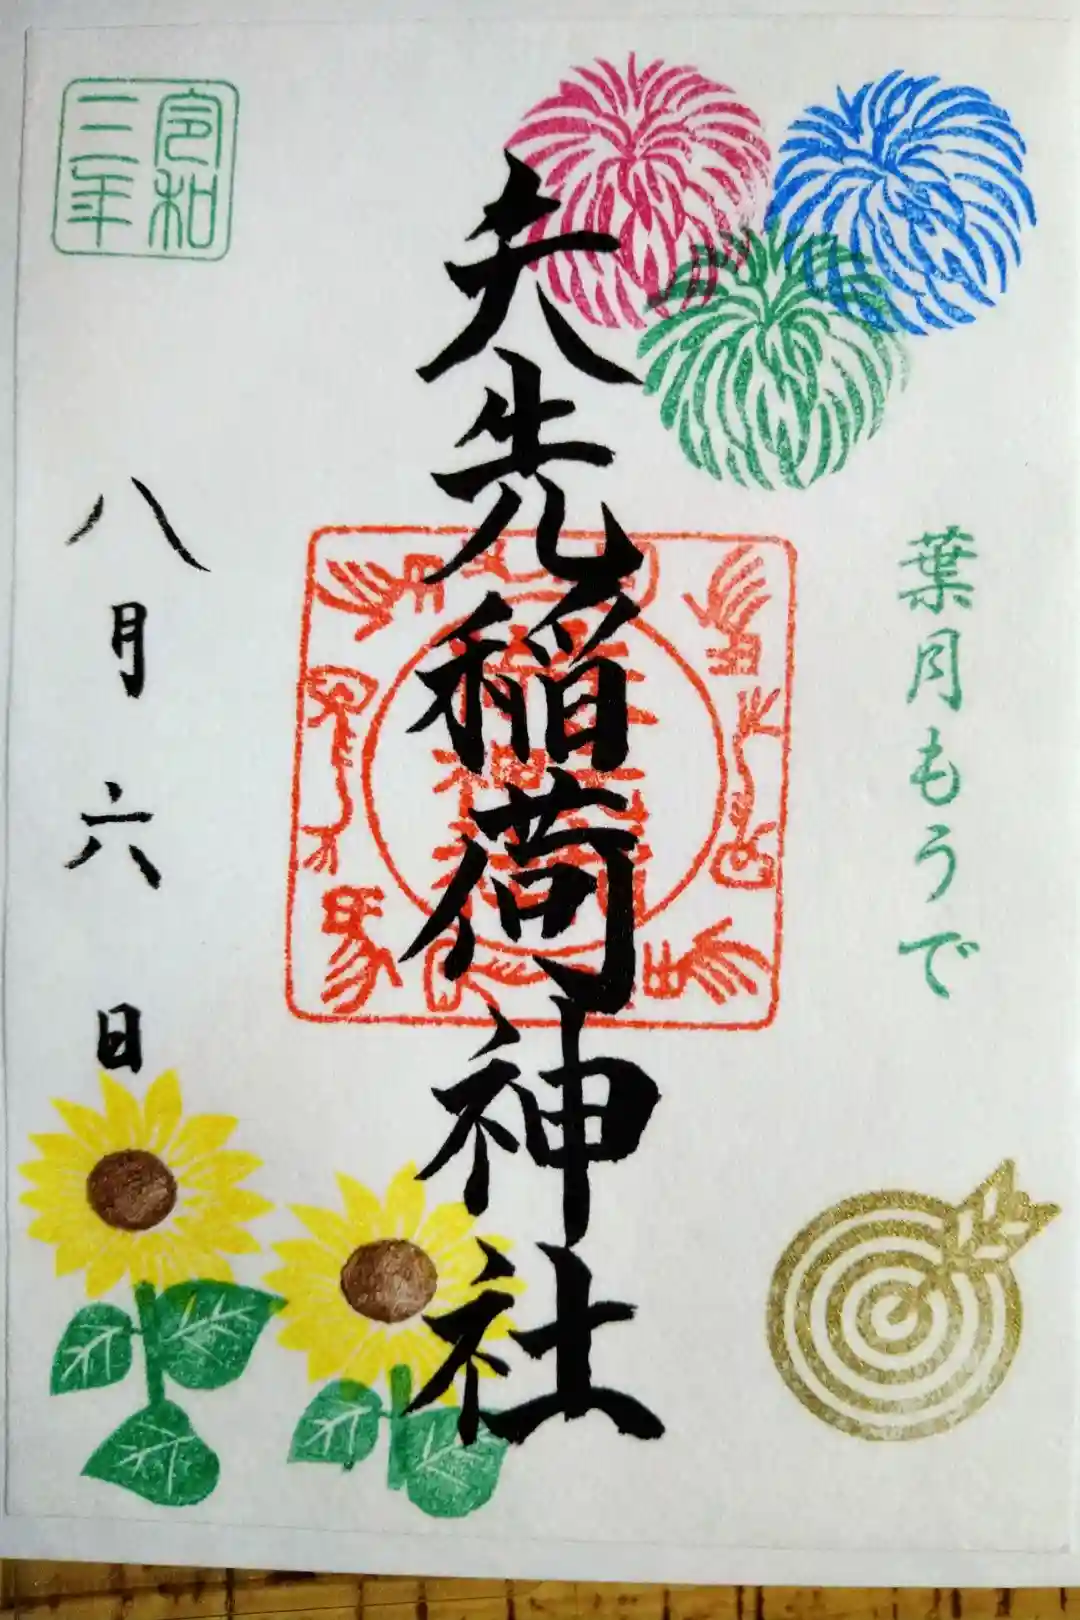 葉月もうで
矢先稲荷神社
令和
三年
八月六日